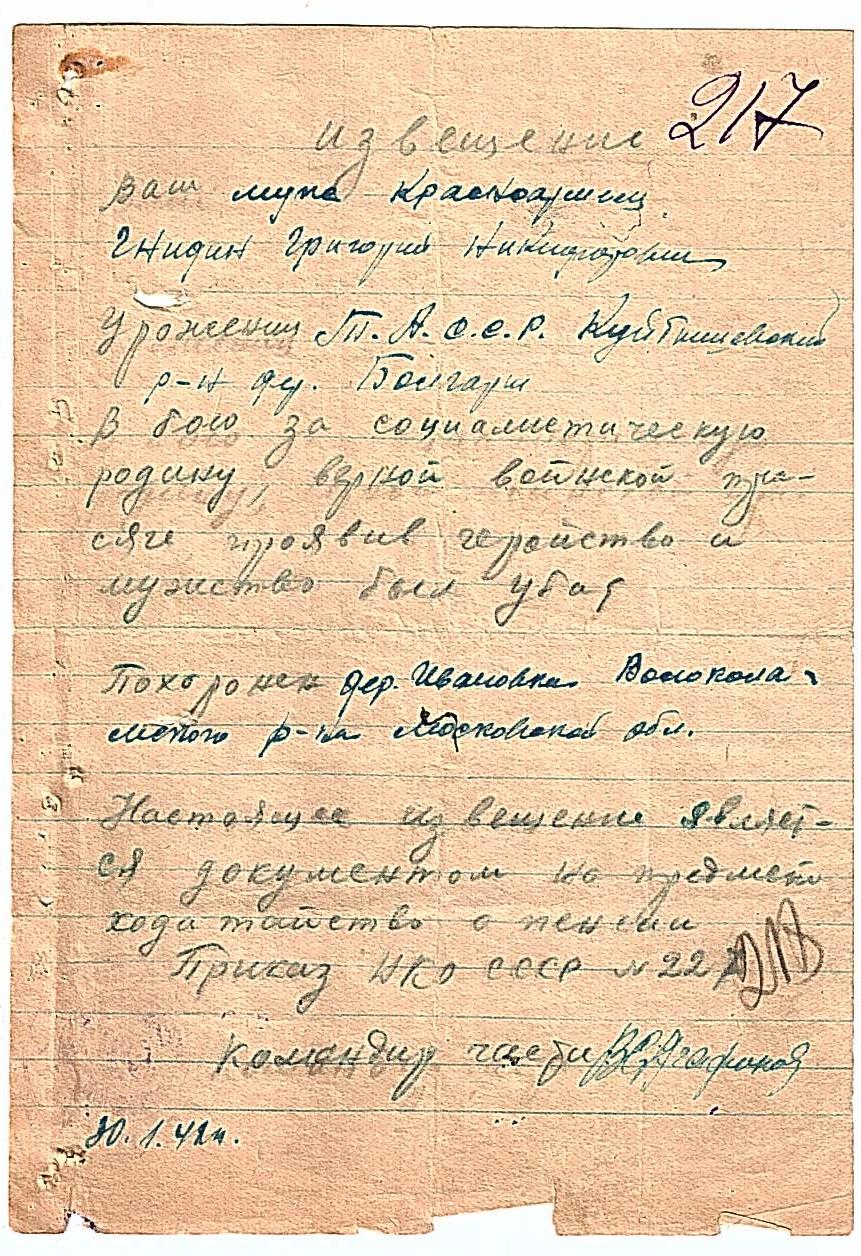 217
извещение
Ваш муж Красноармеец
Гнидин Григорий Никифорович
Уроженец Т.А.С.С.Р. Куйбышевский
р-н дер. Болгары
В бою за социалистическую
родину верной воинской при-
сяге проявив геройство и
мужество был убит
Похоронен дер. Ивановка Волокола-
мского р-на Московской обл.
Настоящее извещение являет-
ся документом на предмет
ходатайство о пенсии
Приказ НКО СССР N 22
217
Командир части Агафонов
30.1.42г.